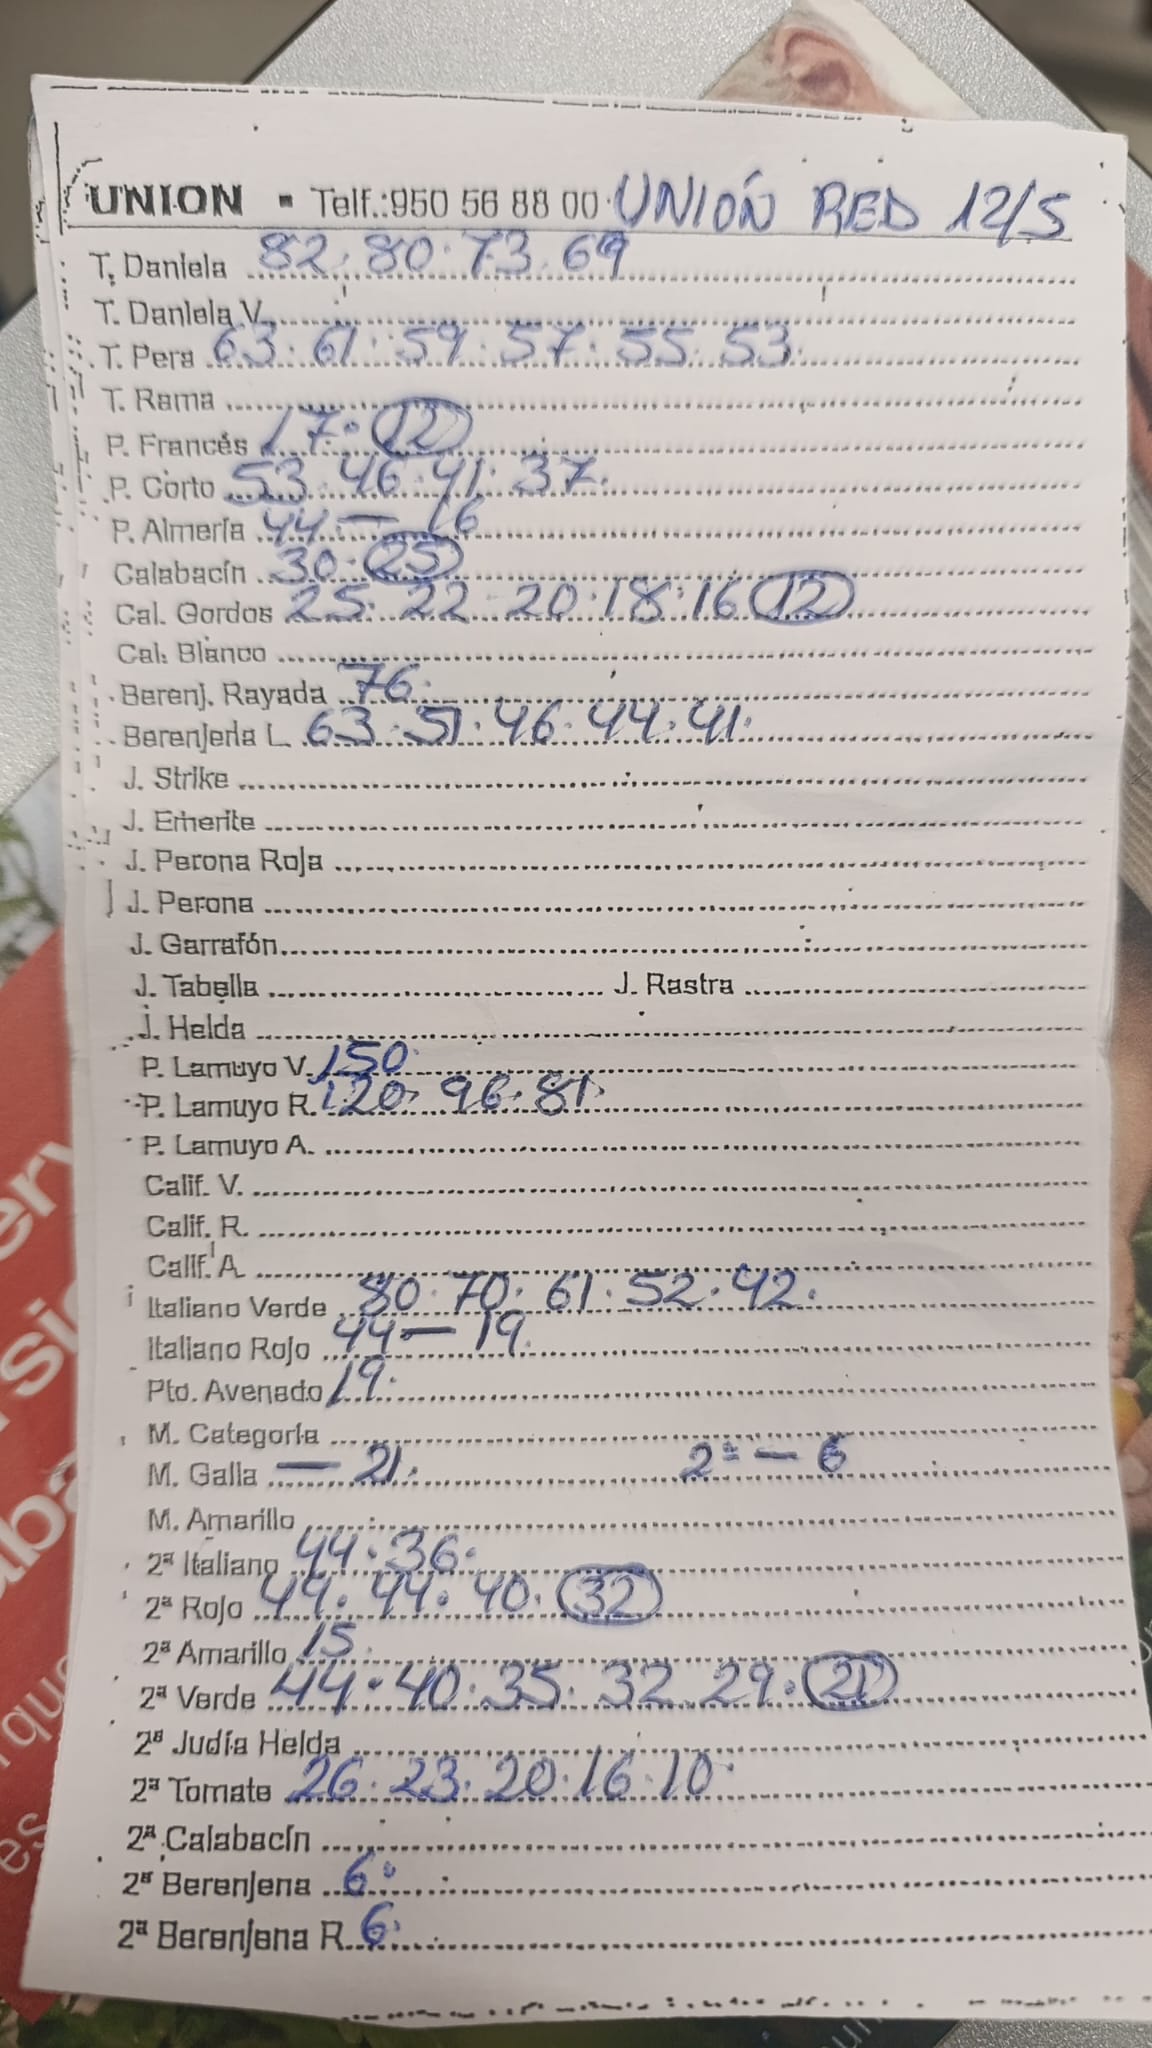 UNION - Telf.:950 56 88 00 UNIÓN RED 12/5
T. Daniela 82. 80. 73. 69
T. Daniela V.
T. Pera 63. 61. 59. 57. 55. 53.
T. Rama
P. Francés 17. 12
P. Corto 53. 46. 41. 37.
P. Almería 44. — 16
Calabacín 30. 25
Cal. Gordos 25. 22. 20. 18. 16 12
Cal. Blanco
Berenj. Rayada 76.
Berenjena L. 63. 51. 46. 44. 41.
J. Strike
J. Emerite
J. Perona Roja
J. Perona
J. Garrafón
J. Tabella J. Rastra
J. Helda
P. Lamuyo V. 150.
P. Lamuyo R. 120. 96. 81.
P. Lamuyo A.
Calif. V.
Calif. R.
Calif. A.
Italiano Verde 80. 70. 61. 52. 42.
Italiano Rojo 44 — 19.
Pto. Avenado 19.
M. Categoría
M. Galia — 21. 2ª — 6
M. Amarillo
2ª Italiano 44. 36.
2ª Rojo 49. 44. 40. 32
2ª Amarillo 15.
2ª Verde 44. 40. 35. 32. 29. 21
2ª Judía Helda
2ª Tomate 26. 23. 20. 16. 10.
2ª Calabacín
2ª Berenjena 6.
2ª Berenjena R. 6.